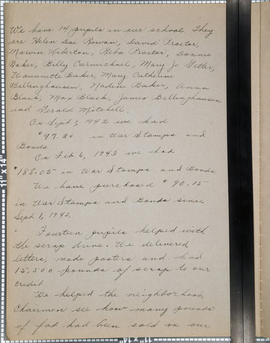 We have 14 pupils in our school. They
are Helen Sue Rowan, David Proctor,
Marvin Waterton, Reba Proctor, Bonnie
Baker, Billy Carmichael, Mary Jo Teller,
Baker, Mary Catherine
Bellinghausen, Nadine Baker, Anna
Black, Max Black, James Bellinghausen
and Gerald Mitchell.
On Sept 1, 1942 we had
$97.24 in War Stamps and
Bonds.
On Feb 6, 1943 we had
$188.05 in War Stamps and Bonds
We have purchased $90.15
in War Stamps and Bonds since
Sept 1, 1942.
Fourteen pupils helped with
the scrap drive. We delivered
letters, made posters and had
15,500 pounds of scrap to our
credit
We helped the neighborhood
Chairmen see how many pounds
of fad had been sold in our
11" x 14"